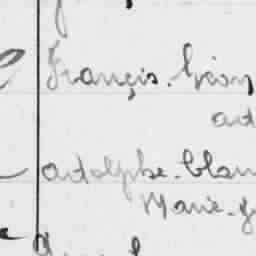 François. Léon
ad
adolphe. blan
Marie. J